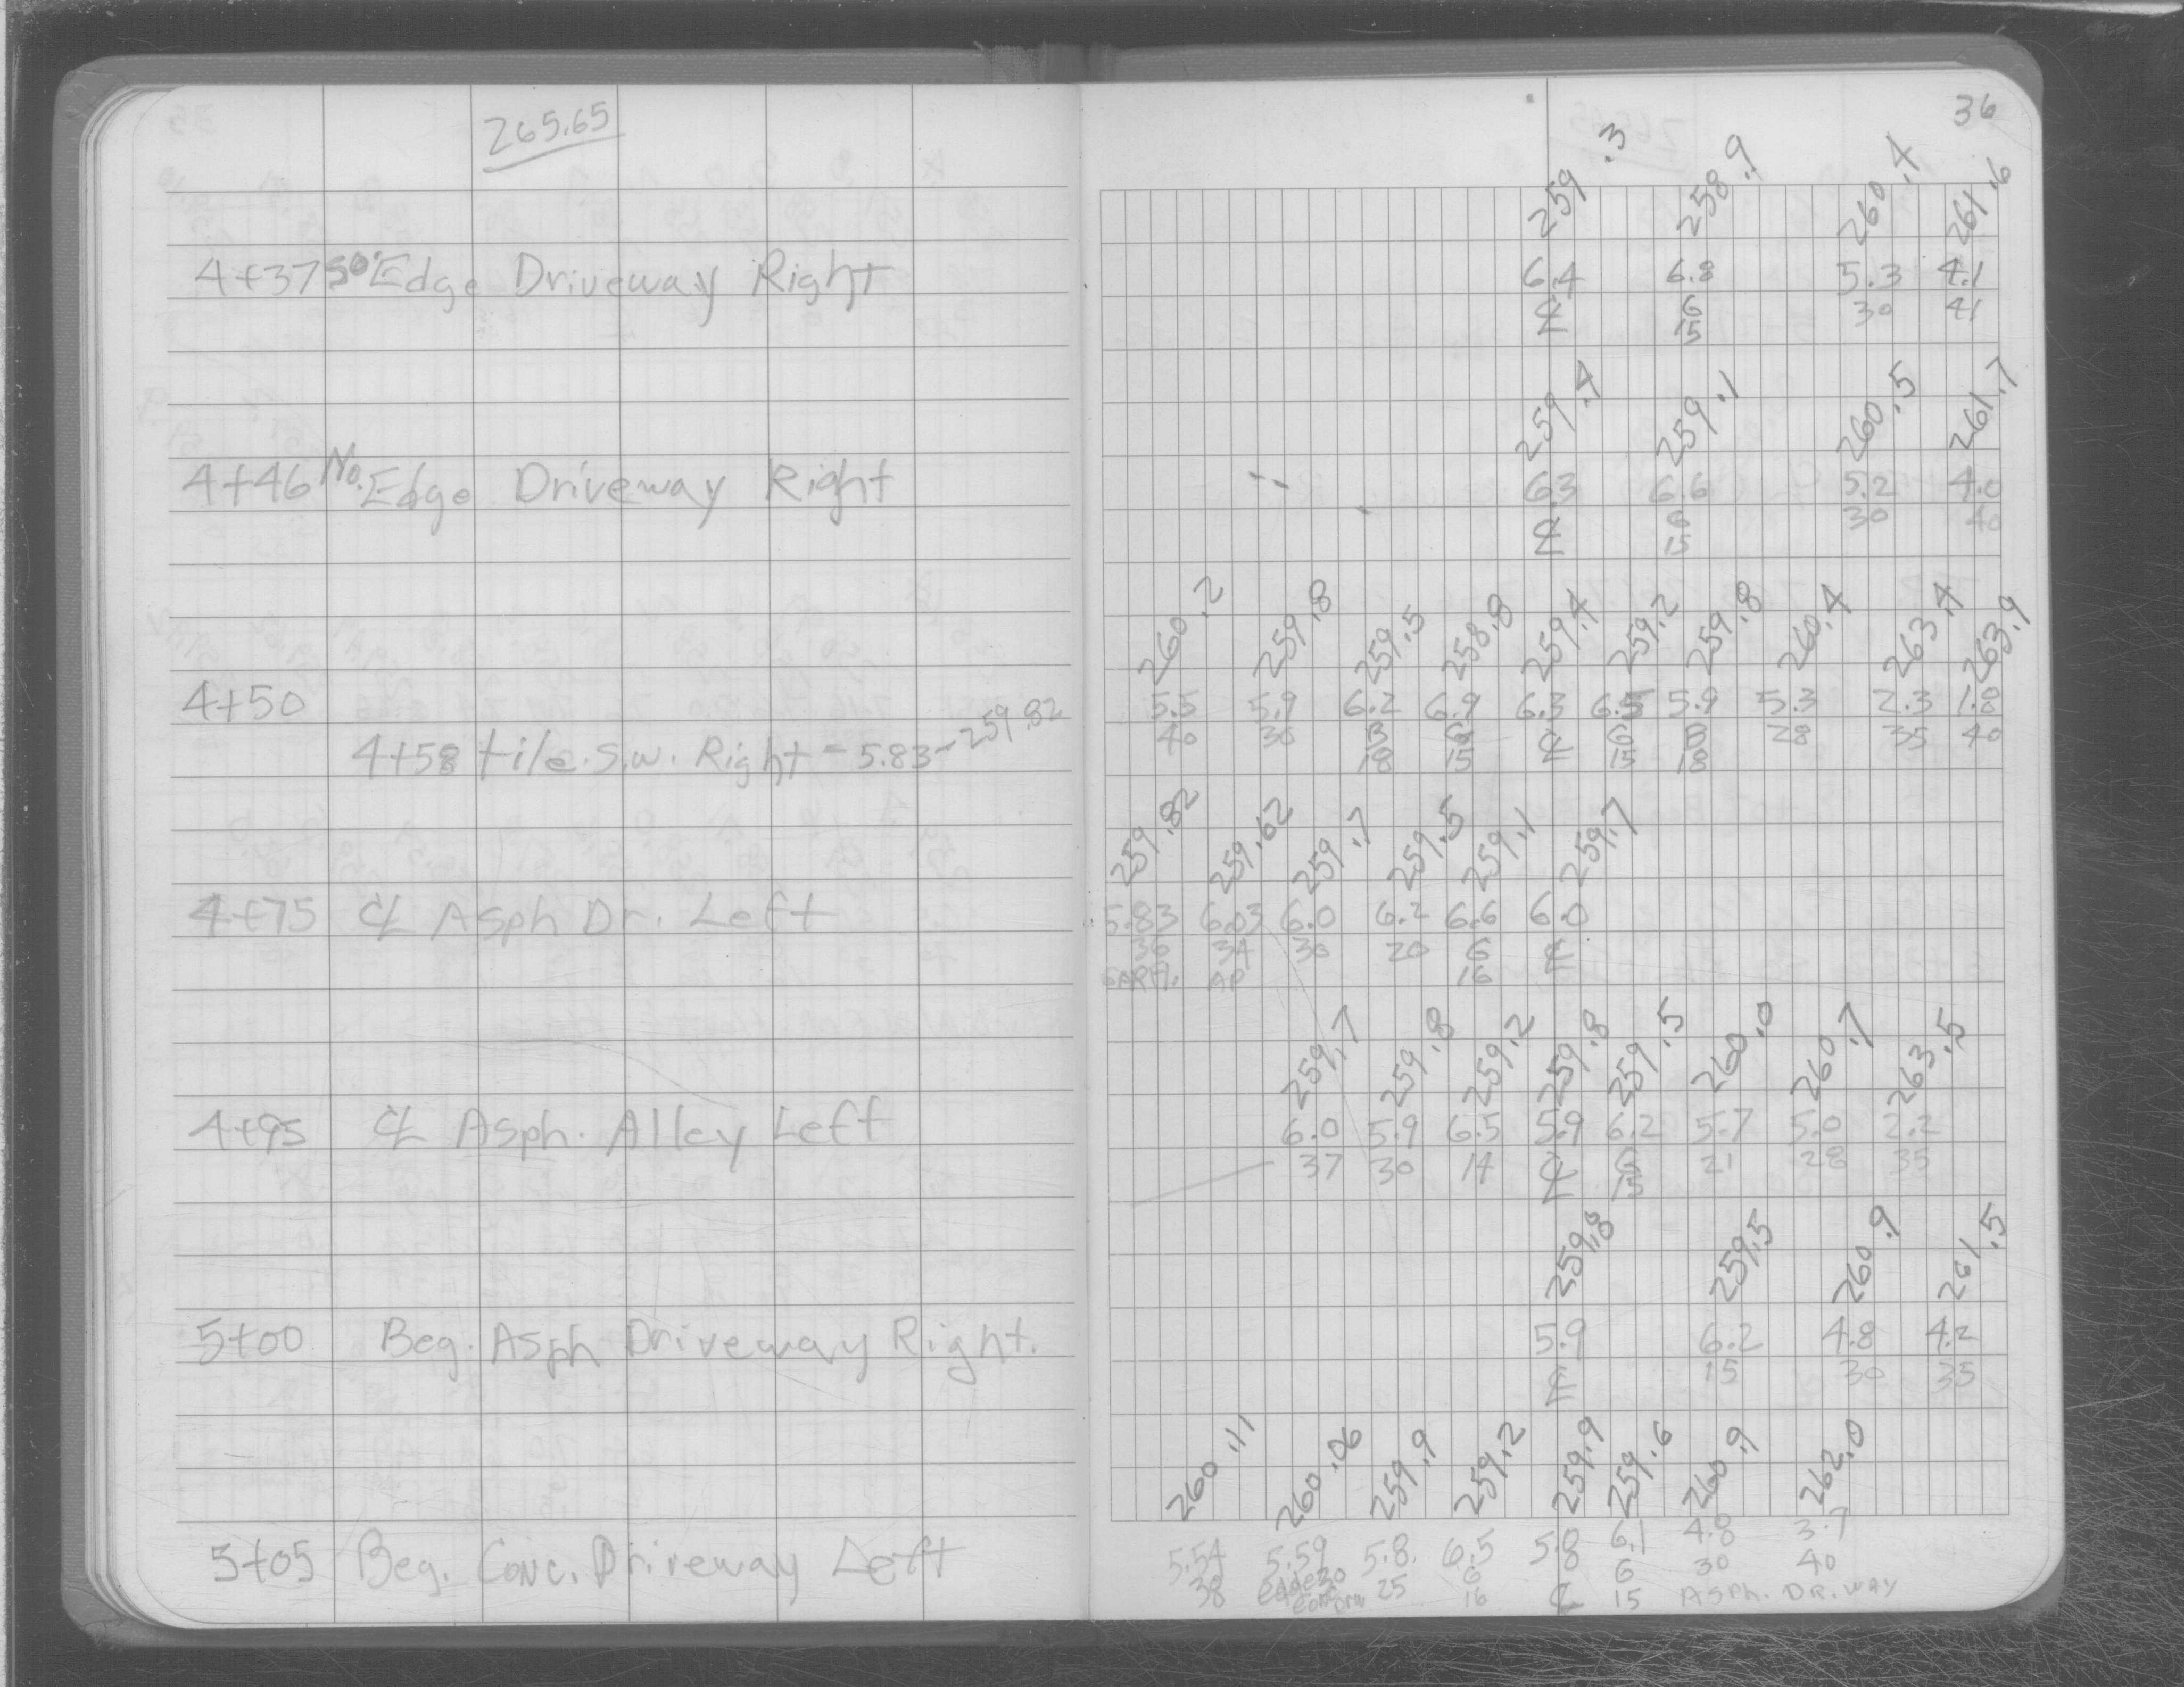 265.65
36
259.3 258.9 260.4 261.6
4+37 So. Edge Driveway Right 6.4 6.8 5.3 4.1
℄ G 30 41
15
259.4 259.1 260.5 261.7
4+46 No. Edge Driveway Right 6.3 6.6 5.2 4.0
℄ G 30 40
15
260.2 259.8 259.5 258.8 259.4 259.2 259.8 260.4 263.4 263.9
4+50 5.5 5.9 6.2 6.9 6.3 6.5 5.9 5.3 2.3 1.8
40 30 B G ℄ G B 28 35 40
4+58 tile. S.W. Right - 5.83 - 259.82 18 15 15 18
259.82 259.62 259.7 259.5 259.1 259.7
4+75 ℄ Asph Dr. Left 5.83 6.03 6.0 6.2 6.6 6.0
36 34 30 20 G ℄
GAR Fl. AP 16
259.7 259.8 259.2 259.8 259.5 260.0 260.7 263.5
4+95 ℄ Asph. Alley Left 6.0 5.9 6.5 5.9 6.2 5.7 5.0 2.2
37 30 14 ℄ G 21 28 35
15
259.8 259.5 260.9 261.5
5+00 Beg. Asph Driveway Right. 5.9 6.2 4.8 4.2
℄ 15 30 35
260.11 260.06 259.9 259.2 259.9 259.6 260.9 262.0
5+05 Beg. Conc. Driveway Left 5.54 5.59 5.8 6.5 5.8 6.1 4.8 3.7
38 edge 30 25 G ℄ G 30 40
conc 16 15 Asph. DR.WAY